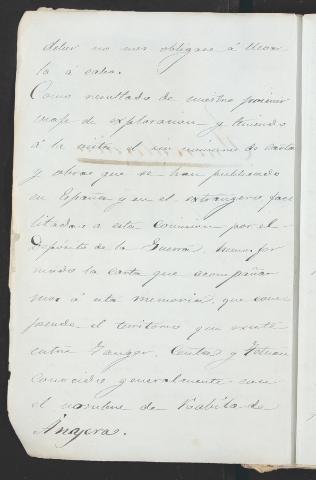 deber no nos obligase á llevar
la á cabo.
Como resultado de nuestro primer
viaje de exploracion y teniendo
á la vista el sin numero de cartas
y obras que se han publicado
en España y en el extrangero faci
litadas a esta Comision por el
Depósito de la Guerra, hemos for
mado la carta que acompaña
mos á esta memoria, que com
prende el territorio que existe
entre Tanger, Ceuta y Tetuan
conocido generalmente con
el nombre de Kabila de
Anyera.